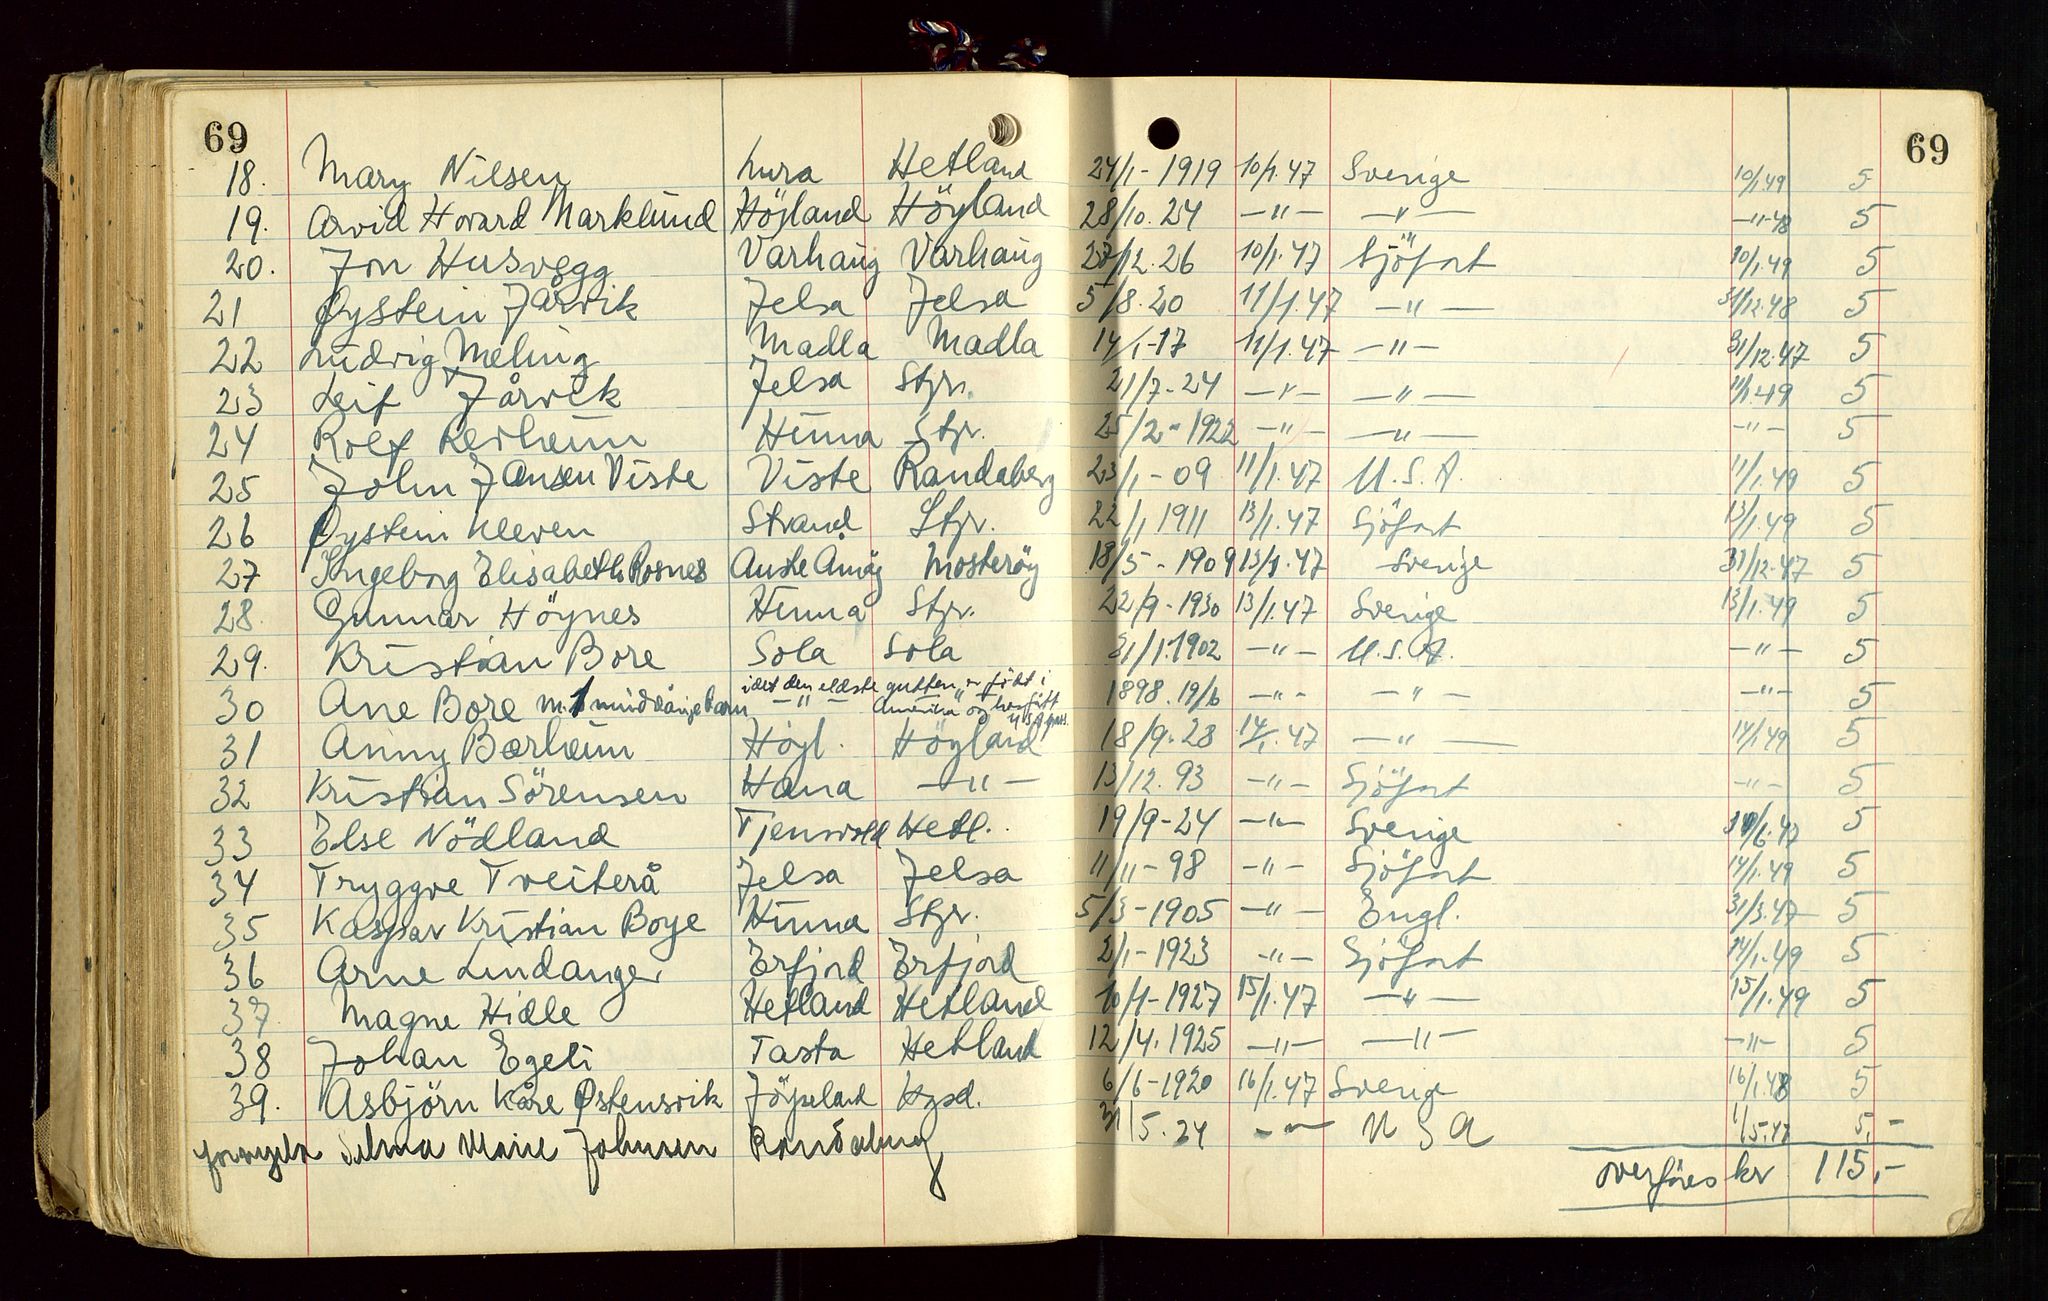 69 69
18. Mary Nilsen Lura Hetland 24/1-1919 10/1.47 Sverige 10/1.49 5
19. Arvid Hovard Marklund Höyland Höyland 28/10.24 -"- -"- -"-48 5
20. Jon Husvegg Varhaug Varhaug 27/12.26 10/1.47 Sjöfart 10/1.49 5
21 Øystein Jårvik Jelsa Jelsa 5/8.20 11/1.47 -"- 31/12.48 5
22 Ludvig Meling Madla Madla 14/1-17 11/1.47 -"- 31/12.47 5
23 Leif Jårvik Jelsa Stgr. 21/7-24 -"- -"- 11/1.49 5
24 Rolf Hinna Stgr. 25/2-1922 -"- -"- -"- 5
25 John Jansen Viste Viste Randaberg 23/1-09 11/1.47 U.S.A. 11/1.49 5
26 Øystein Kleven Strand Stgr. 22/1 1911 13/1.47 Sjöfart 13/1.49 5
27 Ingeborg Elisabeth Rosnes Austre Åmöy Mosteröy 18/5-1909 13/1.47 Sverige 31/12.47 5
28. Gunnar Höynes Hinna Stgr. 22/9-1930 13/1.47 Sverige 13/1.49 5
29. Kristian Bore Sola Sola 31/1.1902 -"- U.S.A. -"- 5
idet den eldste gutten er födt i
30 Ane Bore m. 1 mindreårige barn -"- -"- 1898.19/6 -"- -"- -"- 5
Amerika og har fått
U.S.A. pass.
31 Anny Bærheim Höyl. Höyland 18/9.28 14/1.47 -"- 14/1.49 5
32 Kristian Sörensen Hana -"- 13/12.93 -"- Sjöfart -"- 5
33 Else Nödland Tjensvold Hetl. 19/9-24 -"- Sverige /6.47 5
34 Tryggve Tveiterå Jelsa Jelsa 11/11-98 -"- Sjöfart 14/1.49 5
35 Kaspar Kristian Boye Hinna Stgr. 5/3-1905 -"- Engl. 31/3.47 5
36 Arne Lindanger Erfjord Erfjord 2/1-1923 -"- Sjöfart 14/1.49 5
37. Magne Hidle Hetland Hetland 10/1-1927 15/1.47 -"- 15/1.49 5
38 Johan Egeli Tasta Hetland 12/4.1925 -"- -"- -"- 5
39. Asbjörn Kåre Østensvik Jöpeland Kgsd. 6/6-1920 16/1.47 Sverige 16/1.48 5
fornyelse Selma Marie Johnsen Randaberg 31/5.24 -"- USA 1/5.47 5,-
overföres kr 115,-